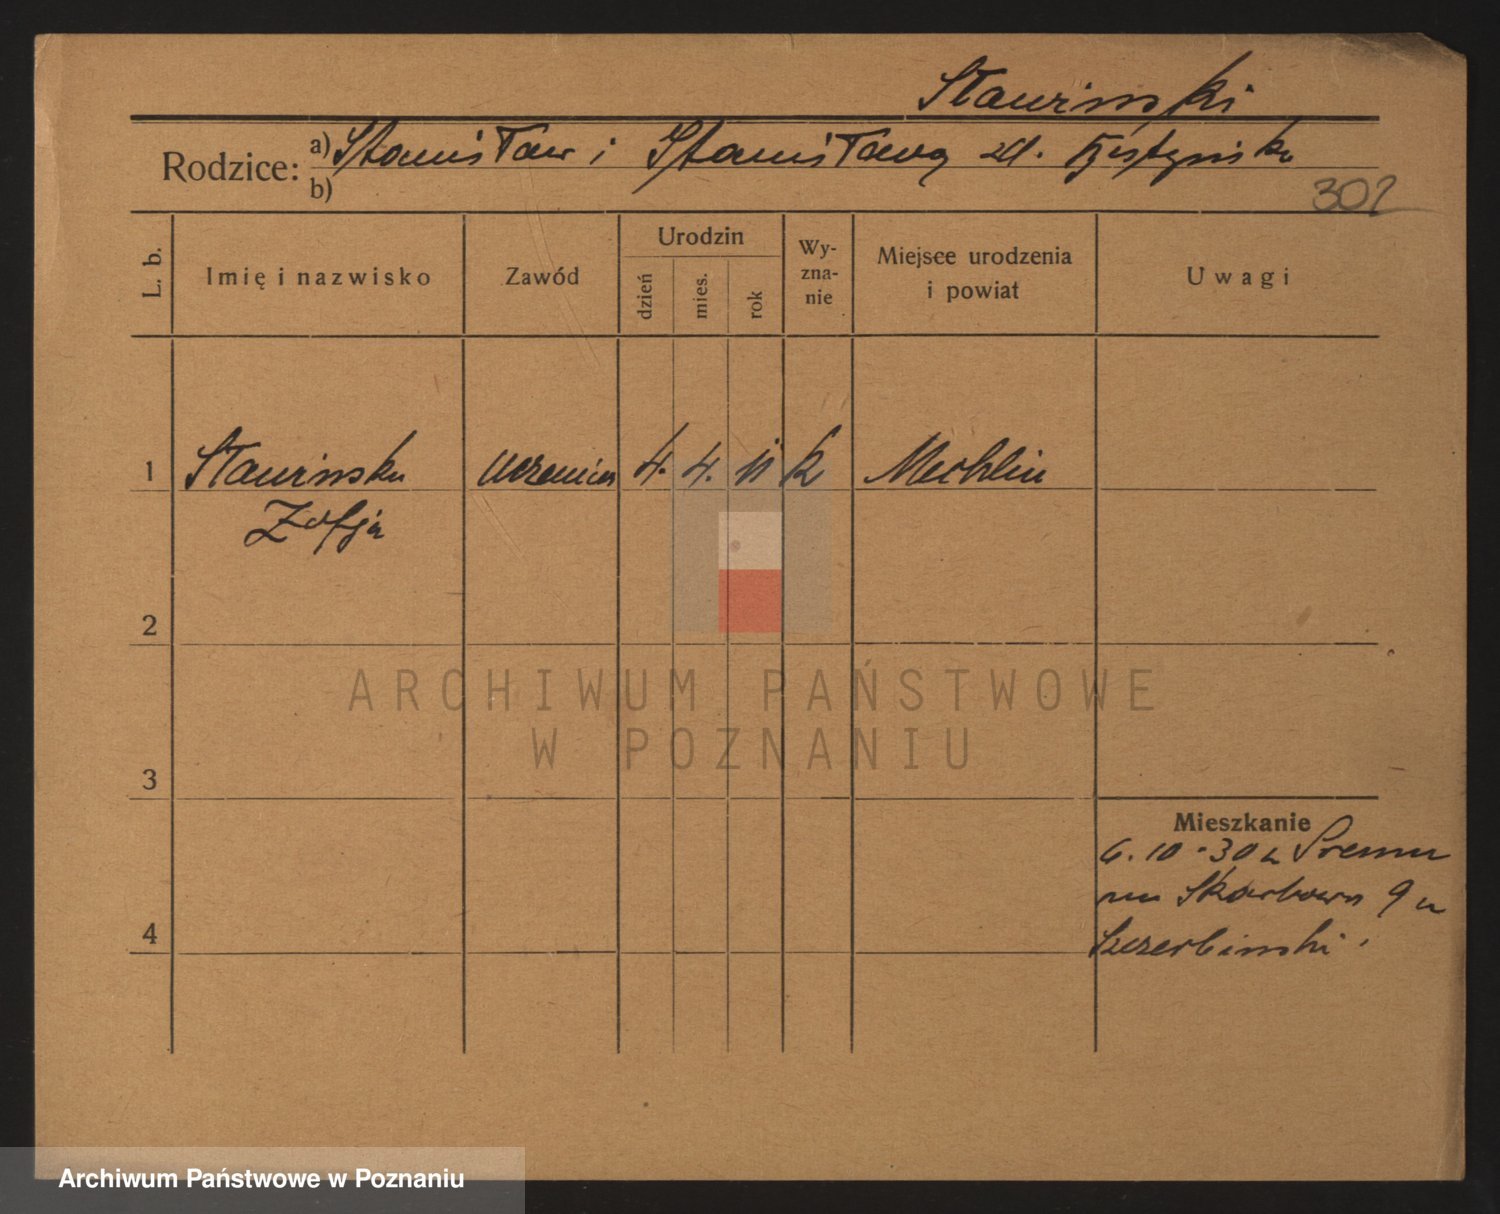 Sławiński
Rodzice: a) Stanisław i Stanisława zd.
b)
302
L. b.
Imię i nazwisko
Zawód
Urodzin
dzień
mies.
rok
Wy-
zna-
nie
Miejsce urodzenia
i powiat
Uwagi
1 Sławińska uczenica 4. 4. 11 k Mechlin
Zofja
2
3
4
Mieszkanie
6.10.30 z Śremu
Skarbowa 9 u
Szczerbinski
ARCHIWUM PAŃSTWOWE
W POZNANIU
Archiwum Państwowe w Poznaniu